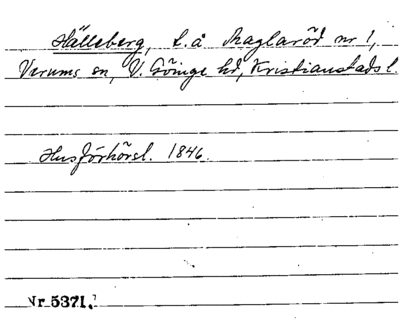 Hälleberg, l.å Maglaröd nr 1,
Verums sn, V. Göinge hd, Kristianstads l.
Husförhörsl. 1846.
Nr 5371.